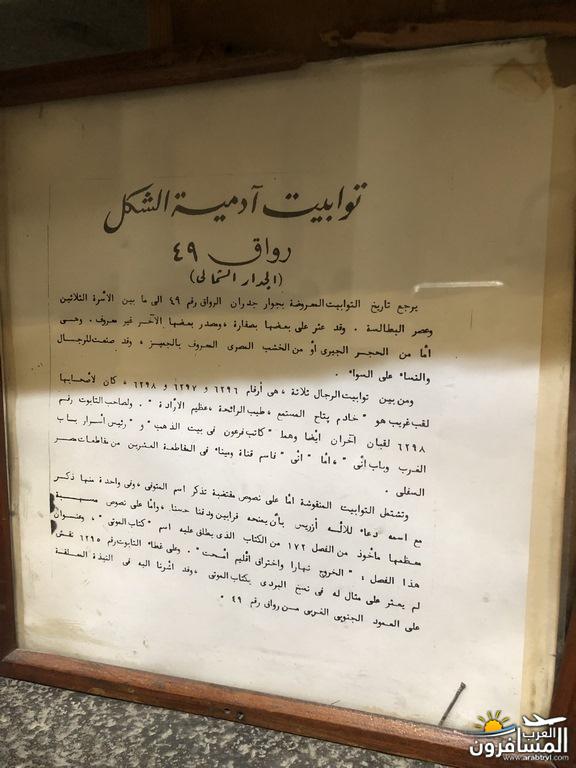 توابيت آدمية الشكل
رواق ٤٩
(الجدار الشمالى)
يرجع تاريخ التوابيت المعروضة بجوار جدران الرواق رقم ٤٩ الى ما بين الأسرة الثلاثين
وعصر البطالسة . وقد عثر على بعضها بصقارة ، ومصدر بعضها الآخر غير معروف . وهى
اما من الحجر الجيرى أو من الخشب المصرى المعروف بالجميز ، وقد صنعت للرجال
والنساء على السواء .
ومن بين توابيت الرجال ثلاثة ، هى أرقام ٦٢٩٦ و ٦٢٩٧ و ٦٢٩٨ ، كان لأصحابها
لقب غريب هو " خادم بتاح المستمع ، طيب الرائحة ، عظيم الارادة " . ولصاحب التابوت رقم
٦٢٩٨ لقبان آخران ايضا وهما " كاتب فرعون فى بيت الذهب " و " رئيس أسرار باب
الغرب وباب انّى " ، أما " انّى " فاسم قناة وميناء فى المقاطعة العشرين من مقاطعات مصر
السفلى .
وتشتمل التوابيت المنقوشة اما على نصوص مقتضبة تذكر اسم المتوفى ، وفى واحدة منها ذكر
مع اسمه دعاء للاله أزريس بأن يمنحه قرابين ودفنا حسنا ، واما على نصوص مسهبة
معظمها مأخوذ من الفصل ١٧٢ من الكتاب الذى يطلق عليه اسم " كتاب الموتى " ، وعنوان
هذا الفصل : " الخروج نهارا واختراق اقليم أمحت " . وعلى غطاء التابوت رقم ٦٢٩٥ نقش
لم يعثر على مثال له فى نسخ البردى بكتاب الموتى ، وقد أشرنا اليه فى النبذة المعلقة
على العمود الجنوبى الغربى من رواق رقم ٤٩ .
العرب
المسافرون
www.arabtrvl.com